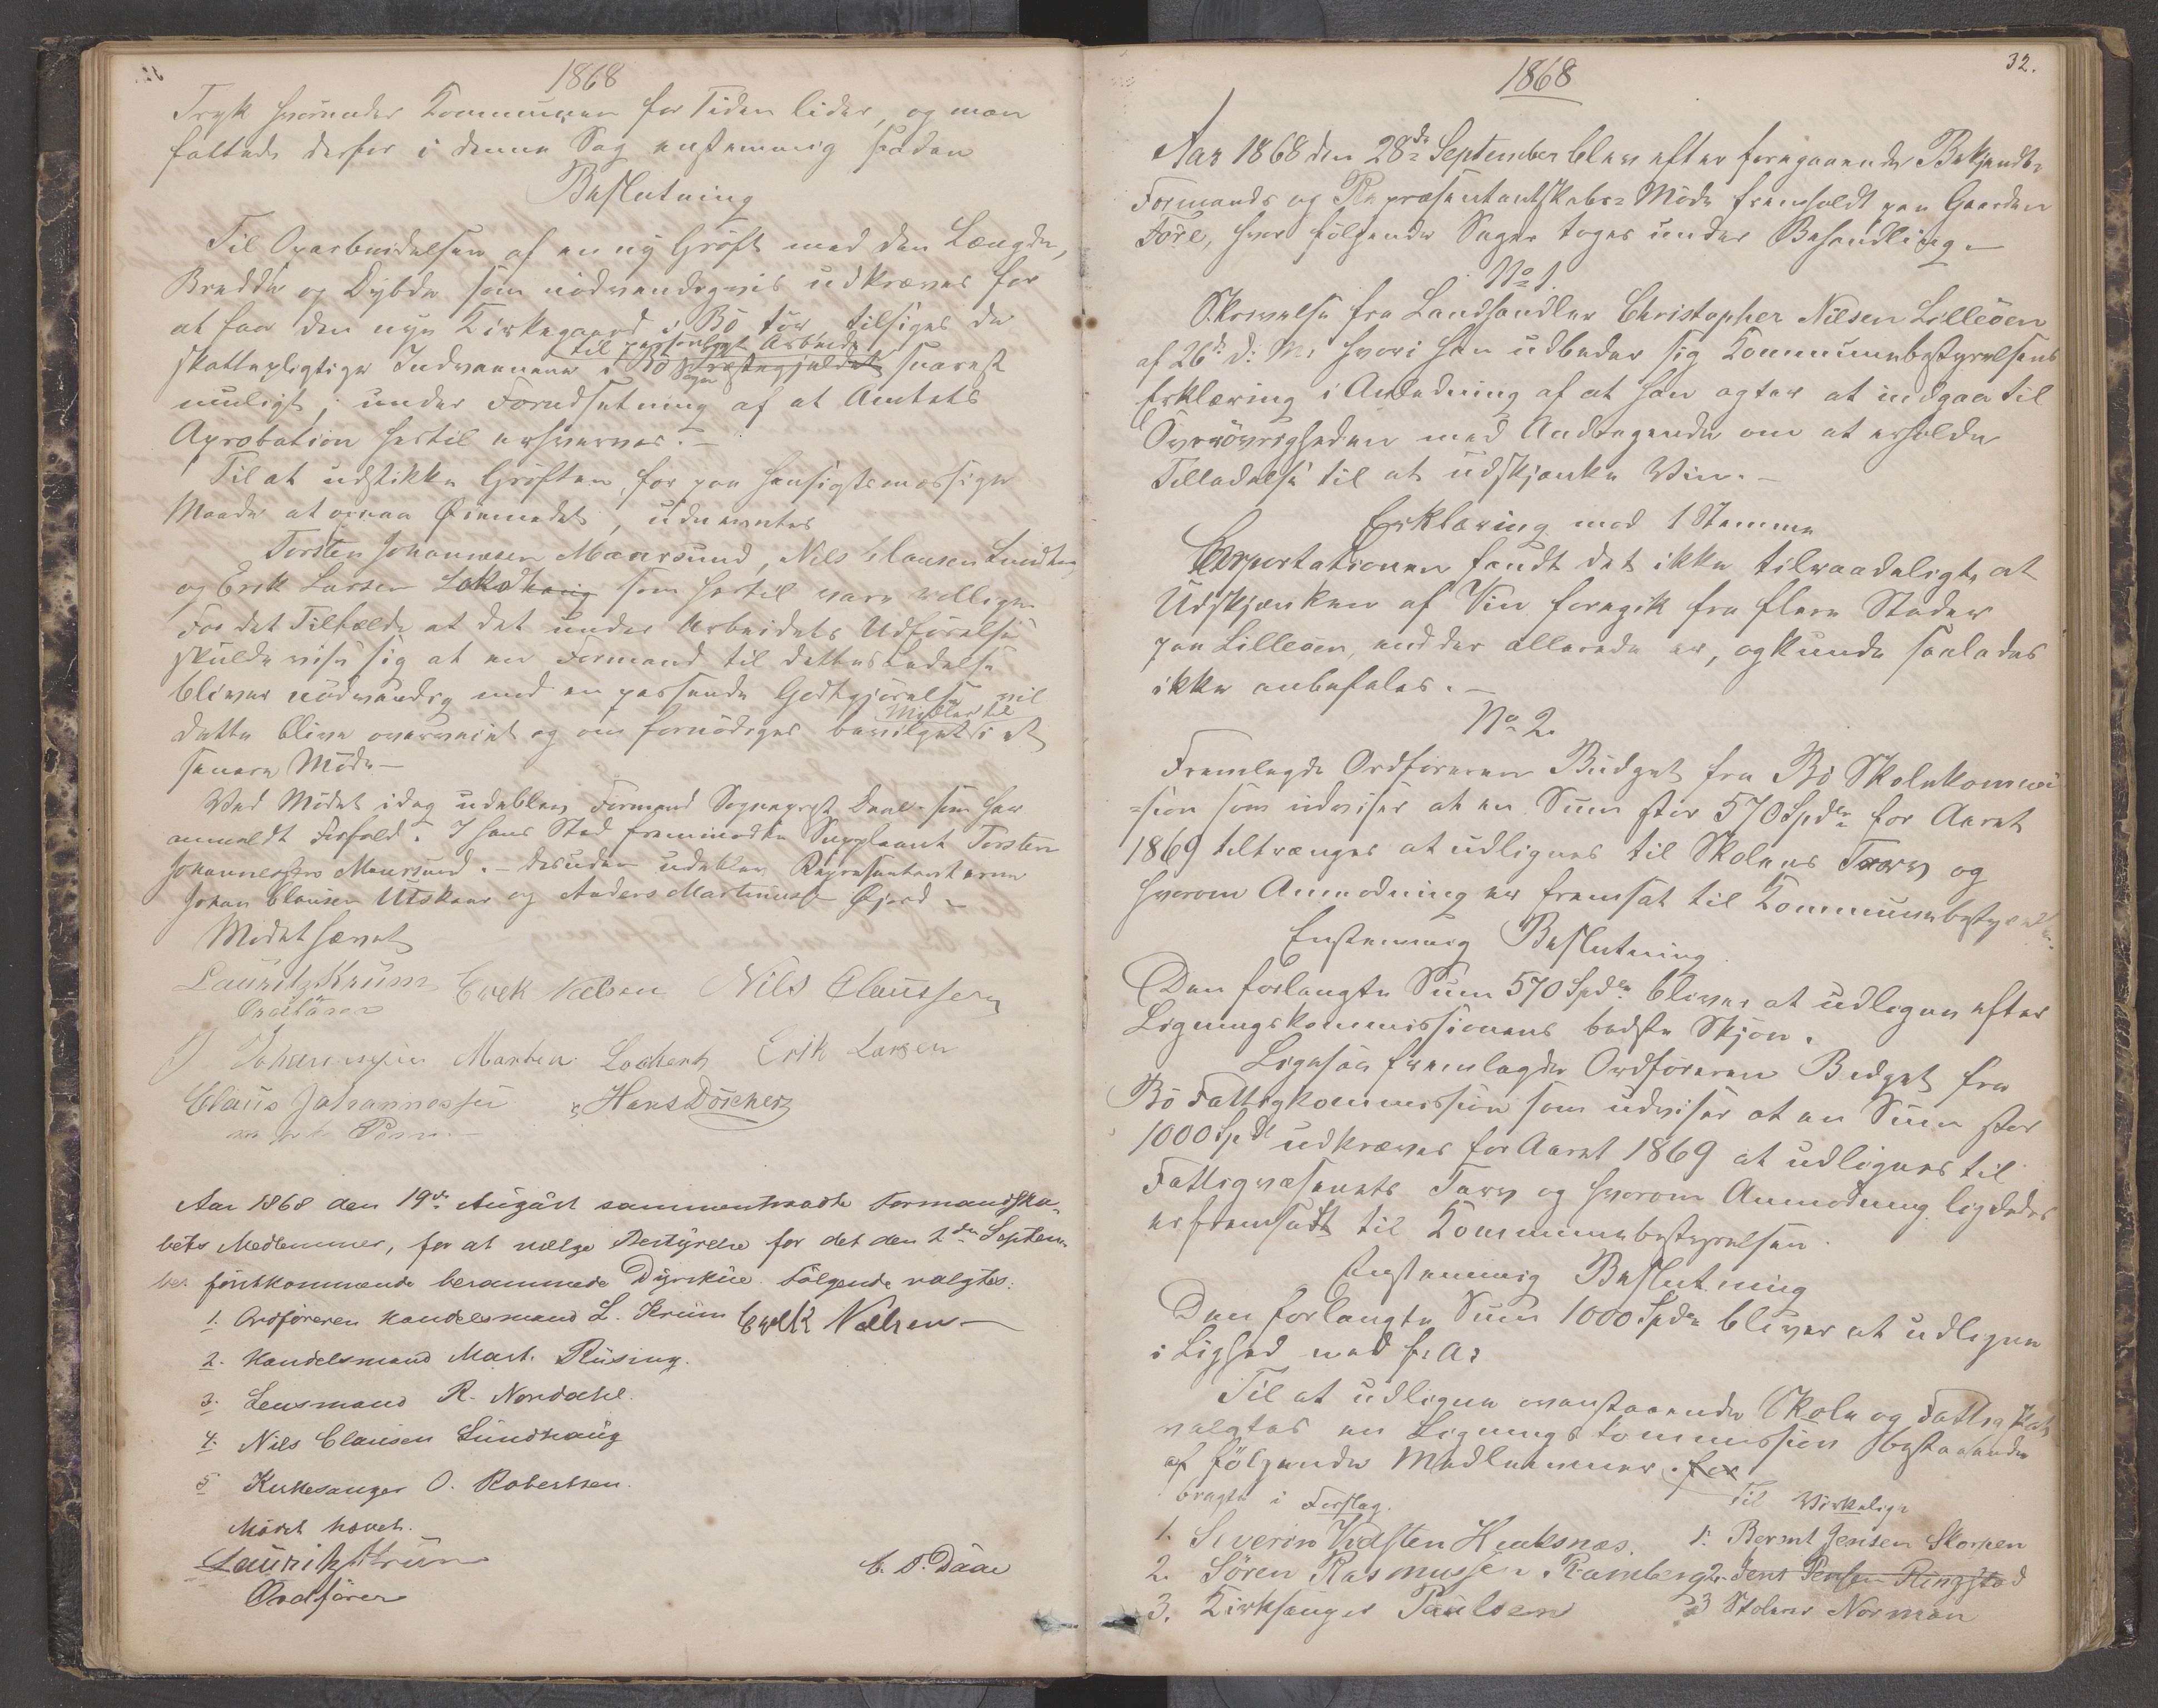 1868
Tryk hvorunder Kommunen for Tiden lider, og man
fattede derfor i denne Sag enstemmig saadan
Beslutning
Til Oparbeidelsen af en ny Grøft med den Længde,
Bredde og Dybde som nødvendigvis udkræves for
at faa den nye Kirkegaard i Bø tør tilsiges de
til personligt Arbeide
skattepligtige Indvaanere i Bø Sogn Præstegjeldet snarest
muligt, under Forudsetning af at Amtets
Aprobation hertil erhverves. —
Til at udstikke Grøften, for paa hensigtsmæssige
Maade at opnaa Øiemedet, udnævntes
Torsten Johannesen Maarsund, Nils Clausen Sundhaug
og Erik Larsen som hertil vare villige.
For det Tilfælde at det under Arbeidets Udførelse
skulde vise sig at en Formand til dettes Ledelse
bliver nødvendig med en passende Godtgjørelse vil
Midler til
dette blive overveiet og om fornødiges bevilget i et
senere Møde —
Ved Mødet idag udeblev Formand Sogneprest Daae som har
anmeldt Forfald. I hans Sted fremmødte Suppleant Torsten
Johannessen Maarsund. — desuden udeblev Repræsentanterne
Johan Clausen Utskaar og Anders Martinussen
Mødet hævet
Lauritz Krüm Erek Nielsen Nils Claussen
Ordfører
T. Johannesen Marten Lochert Erik Larsen
Claus Johannessen Hans Döscher
m. p. Pen —
Aar 1868 den 19de August sammentraadte Formandska-
bets Medlemmer, for at vælge Bestyrelse for det den 2den Septem-
ber førstkommende berammede Dyrskue. Følgende valgtes:
1. Ordføreren Handelsmand L. Krüm Erek Nielsen —
2. Handelsmand Mart. Rüsing.
3. Lensmand R. Nordahl.
4. Nils Clausen Sundhaug
5 Kirkesanger O. Robertsen.
Mødet hævet.
Lauritz Krüm C. D. Daae
Ordfører
32.
1868
Aar 1868 den 28de September blev efter foregaaende Bekjendtg
Formands og Repræsentantskabs-Møde fremholdt paa Gaarden
Före, hvor følgende Sager toges under Behandling —
No 1.
Skrivelse fra Landhandler Christopher Nilsen Lilleøen
af 26de d: M: hvori han udbeder sig Kommunebestyrelsens
Erklæring i Anledning af at han agter at indgaa til
Overøvrigheden med Andragende om at erholde
Tilladelse til at udskjenke Vin. —
Erklæring mod 1 Stemme
Representationen fandt det ikke tilraadeligt, at
Udskjænken af Vin foregik fra flere Steder
paa Lilleøen, end der allerede er, og kunde saaledes
ikke anbefales. —
No 2.
Fremlagde Ordføreren Budget fra Bø Skolekommi
=sion som udviser at en Sum stor 570 Spdlr for Aaret
1869 tiltrænges at udlignes til Skolens Tarv og
hvorom Anmodning er fremsat til Kommunebestyrelsen.
Enstemmig Beslutning.
Den forlangte Sum 570 Spdlr bliver at udligne efter
Ligningskommissionens bedste Skjøn.
Ligesaa fremlagde Ordføreren Budget fra
Bø Fattigkommission som udviser at en Sum stor
1000 Spdl udkræves for Aaret 1869 at udlignes til
Fattigvæsenets Tarv og hvorom Anmodning ligeledes
er fremsadt til Kommunebestyrelsen.
Enstemmig Beslutning
Den forlangte Sum 1000 Spdlr bliver at udligne
i Lighed med f. A.
Til at udligne ovenstaaende Skole og Fattig skat
valgtes en Ligningskommission bestaaende
af følgende Medlemmer. for
bragte i Forslag. Til Virkelige
1. Severin Vedsten Henksnæs. 1. Bernt Jensen Skorpen
2. Søren Rasmussen Ramberg 2. Jens Jensen Ringstad
3. Kirksanger Paulsen 3 Skolerer Norman